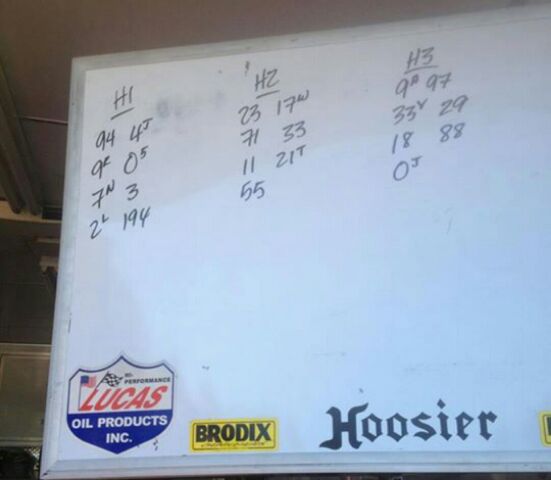 H1
94 4J
9E 05
7N 3
2L 194
H2
23 17W
71 33
11 21T
55
H3
9R 97
33V 29
18 88
0J
HI-PERFORMANCE
LUCAS
OIL PRODUCTS
INC.
BRODIX
Hoosier